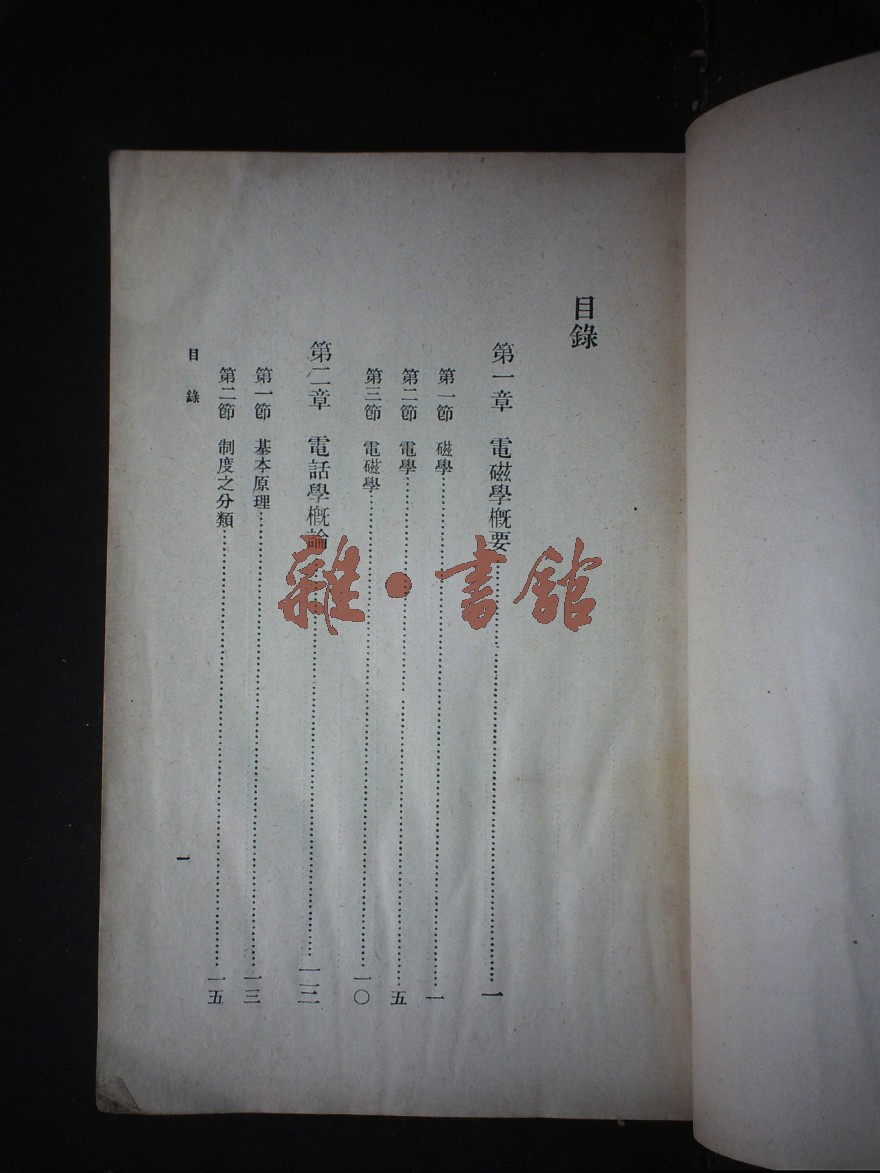 目錄
第一章 電磁學概要……一
第一節 磁學……一
第二節 電學……五
第三節 電磁學……一〇
第二章 電話學概論……一二
第一節 基本原理……一三
第二節 制度之分類……一五
目錄
一
雜·書館